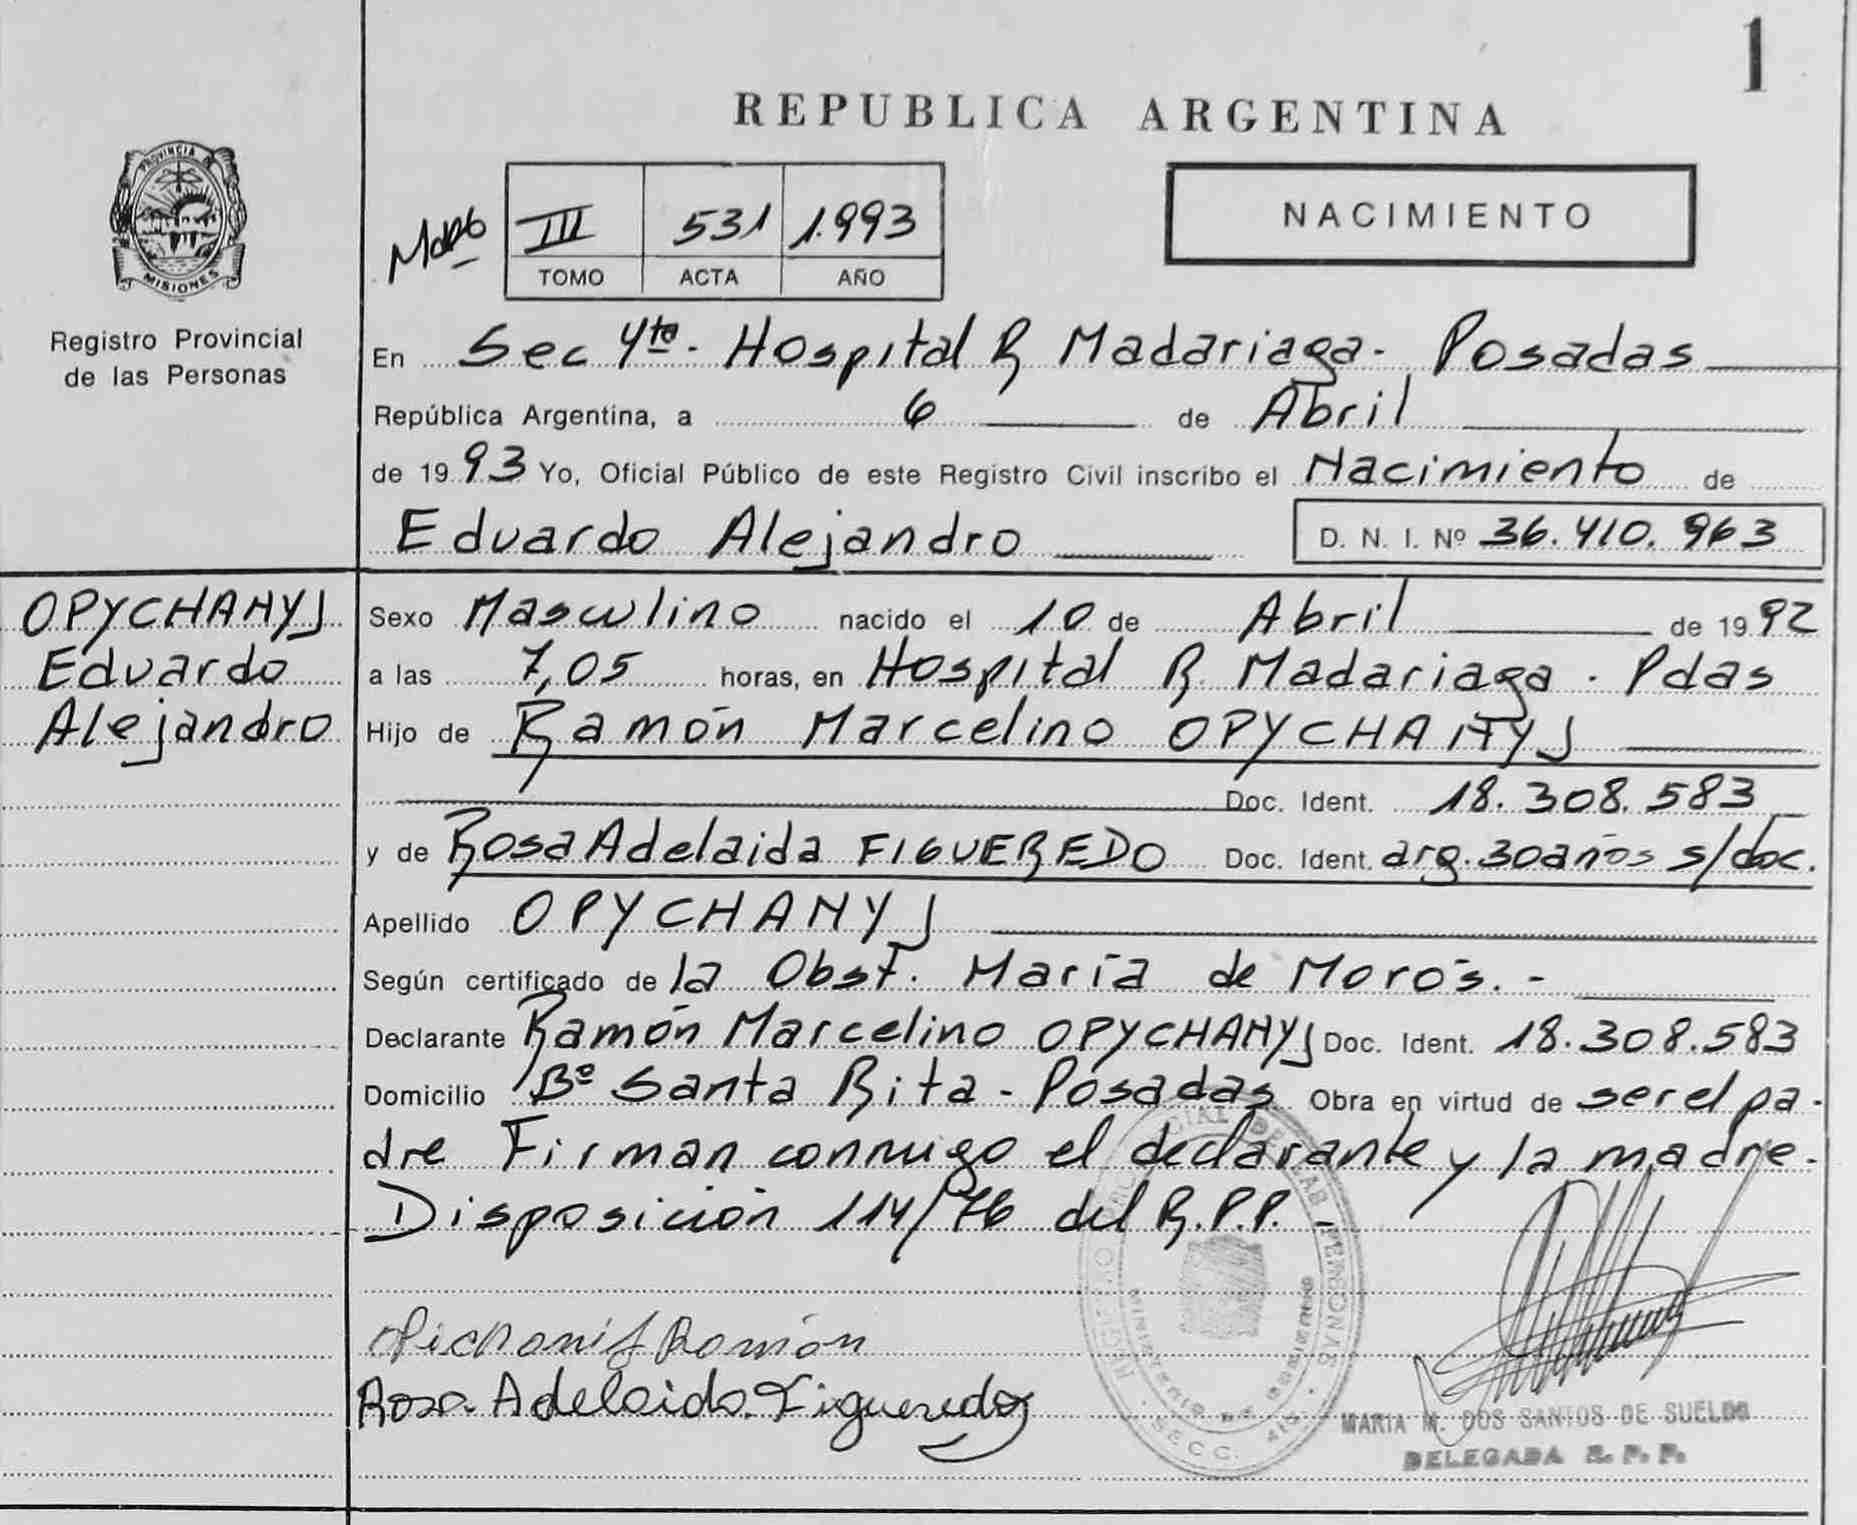 1
REPUBLICA ARGENTINA
PROVINCIA DE
MISIONES
Registro Provincial
de las Personas
III 531 1.993
TOMO ACTA AÑO
NACIMIENTO
En Sec 4ta - Hospital R Madariaga - Posadas
República Argentina, a 6 de Abril
de 1993 Yo, Oficial Público de este Registro Civil inscribo el Nacimiento de
Eduardo Alejandro D. N. I. Nº 36.410.963
OPYCHANYJ
Eduardo
Alejandro
Sexo Masculino nacido el 10 de Abril de 1992
a las 7,05 horas, en Hospital R Madariaga - Pdas
Hijo de Ramón Marcelino OPYCHANYJ
Doc. Ident. 18.308.583
y de Rosa Adelaida FIGUEREDO Doc. Ident. arg. 30 años s/doc.
Apellido OPYCHANYJ
Según certificado de la Obst. María de Moros. -
Declarante Ramón Marcelino OPYCHANYJ Doc. Ident. 18.308.583
Domicilio Bº Santa Rita - Posadas Obra en virtud de ser el pa-
dre Firman conmigo el declarante y la madre.
Disposición 114/76 del R.P.P. -
Ramón
Rosa Adelaida Figueredo
REGISTRO PROVINCIAL DE LAS PERSONAS
MINISTERIO DE GOBIERNO
SECC. 4ta.
MARIA M. DOS SANTOS DE SUELDO
DELEGADA R. P. P.